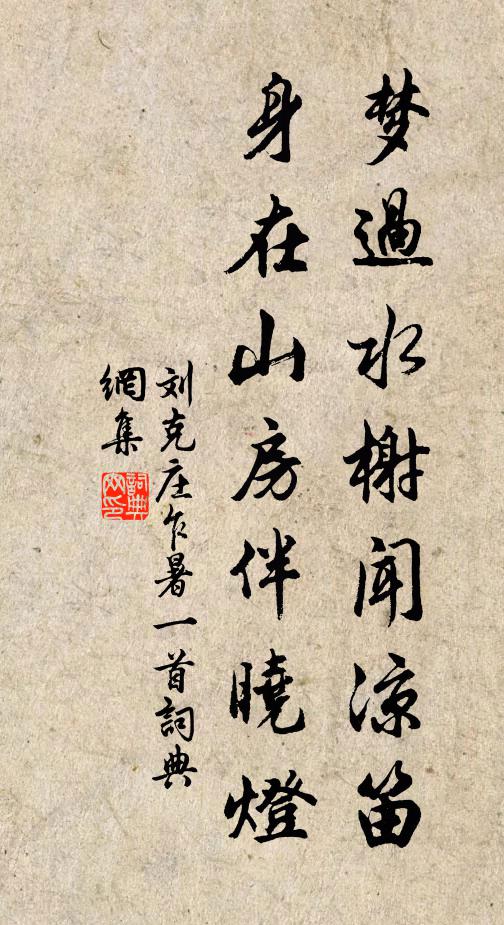 梦過水榭闻凉笛
身在山房伴曉燈
刘克庄乍暑一首詞典
網集
詞典網印